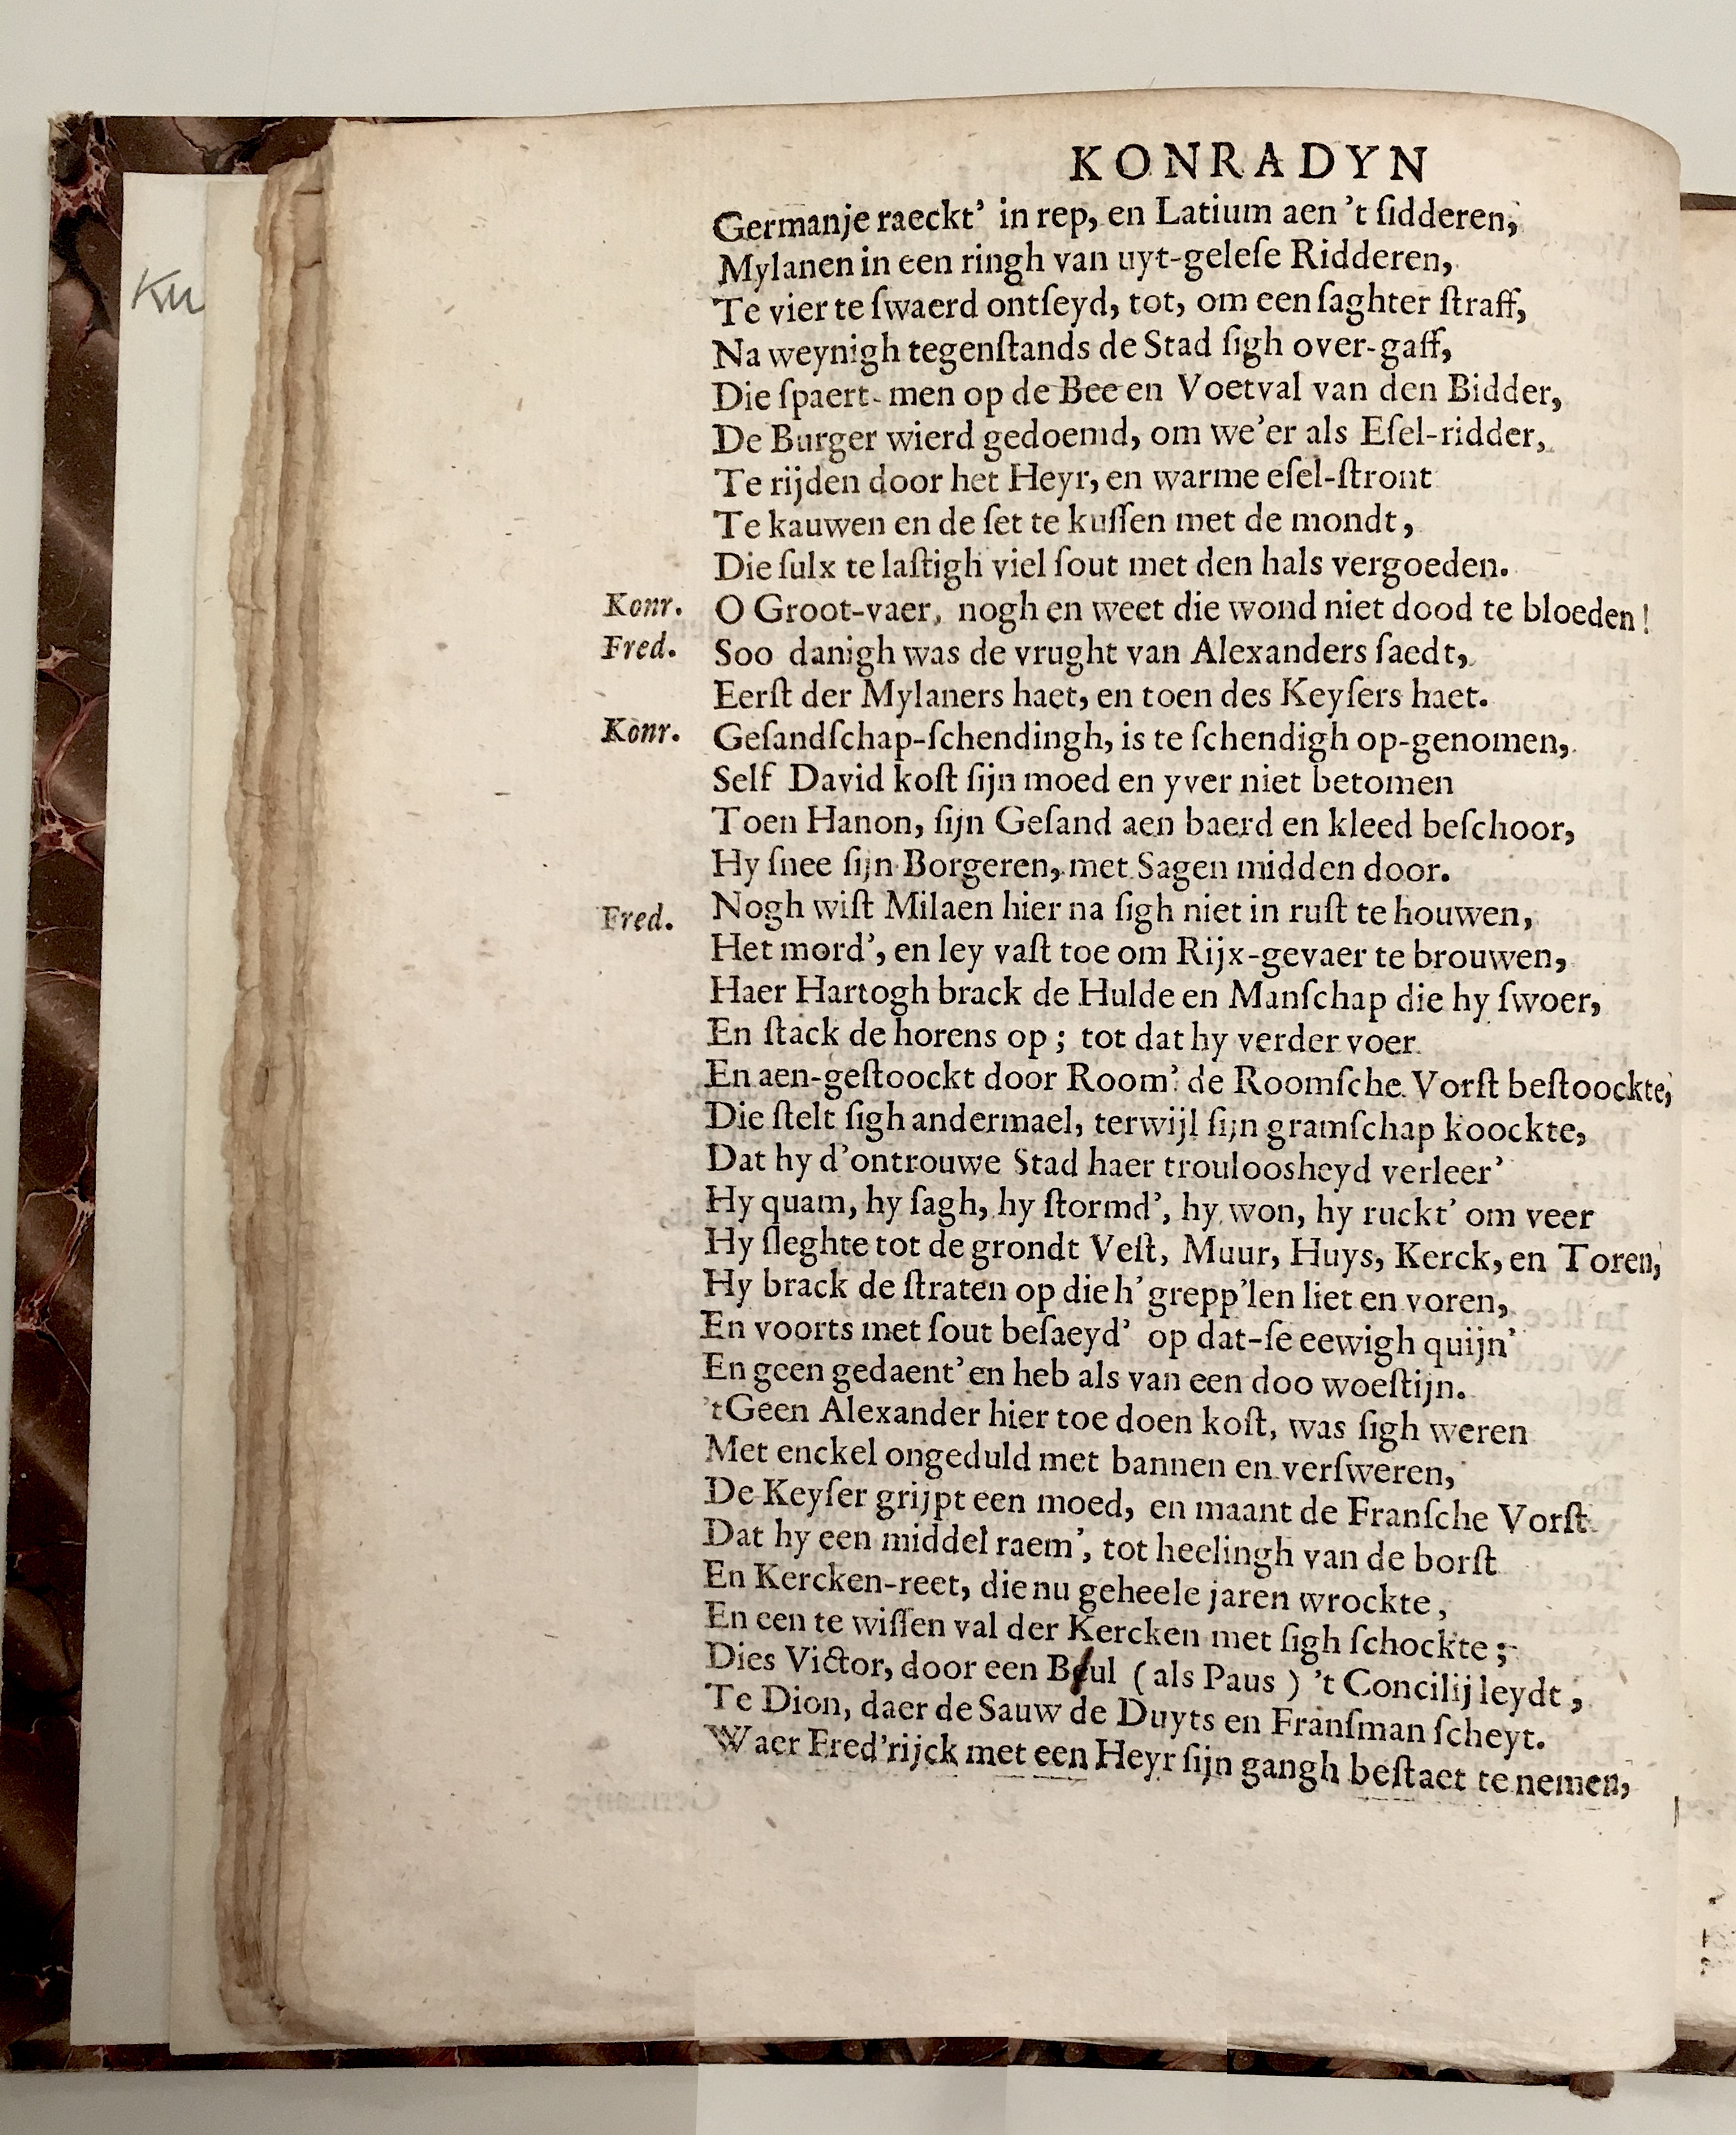 KONRADYN
Germanje raeckt’ in rep, en Latium aen ’t ſidderen,
Mylanen in een ringh van uyt-geleſe Ridderen,
Te vier te ſwaerd ontſeyd, tot, om een ſaghter ſtraff,
Na weynigh tegenſtands de Stad ſigh over-gaff,
Die ſpaert-men op de Bee en Voetval van den Bidder,
De Burger wierd gedoemd, om we’er als Eſel-ridder,
Te rijden door het Heyr, en warme eſel-ſtront
Te kauwen en de ſet te kuſſen met de mondt,
Die ſulx te laſtigh viel ſout met den hals vergoeden.
Konr. O Groot-vaer, nogh en weet die wond niet dood te bloeden!
Fred. Soo danigh was de vrught van Alexanders ſaedt,
Eerſt der Mylaners haet, en toen des Keyſers haet.
Konr. Geſandſchap-ſchendingh, is te ſchendigh op-genomen,
Self David koſt ſijn moed en yver niet betomen
Toen Hanon, ſijn Geſand aen baerd en kleed beſchoor,
Hy ſnee ſijn Borgeren, met Sagen midden door.
Fred. Nogh wiſt Milaen hier na ſigh niet in ruſt te houwen,
Het mord’, en ley vaſt toe om Rijx-gevaer te brouwen,
Haer Hartogh brack de Hulde en Manſchap die hy ſwoer,
En ſtack de horens op; tot dat hy verder voer
En aen-geſtoockt door Room’ de Roomſche Vorſt beſtoockte,
Die ſtelt ſigh andermael, terwijl ſijn gramſchap koockte,
Dat hy d’ontrouwe Stad haer trouloosheyd verleer’
Hy quam, hy ſagh, hy ſtormd’, hy won, hy ruckt’ om veer
Hy ſleghte tot de grondt Veſt, Muur, Huys, Kerck, en Toren,
Hy brack de ſtraten op die h’ grepp’len liet en voren,
En voorts met ſout beſaeyd’ op dat-ſe eewigh quijn’
En geen gedaent’ en heb als van een doo woeſtijn.
’tGeen Alexander hier toe doen koſt, was ſigh weren
Met enckel ongeduld met bannen en verſweren,
De Keyſer grijpt een moed, en maant de Franſche Vorſt
Dat hy een middel raem’, tot heelingh van de borſt
En Kercken-reet, die nu geheele jaren wrockte,
En een te wiſſen val der Kercken met ſigh ſchockte;
Dies Victor, door een Bul (als Paus) ’t Concilij leydt,
Te Dion, daer de Sauw de Duyts en Franſman ſcheyt.
Waer Fred’rijck met een Heyr ſijn gangh beſtaet te nemen,
Ku